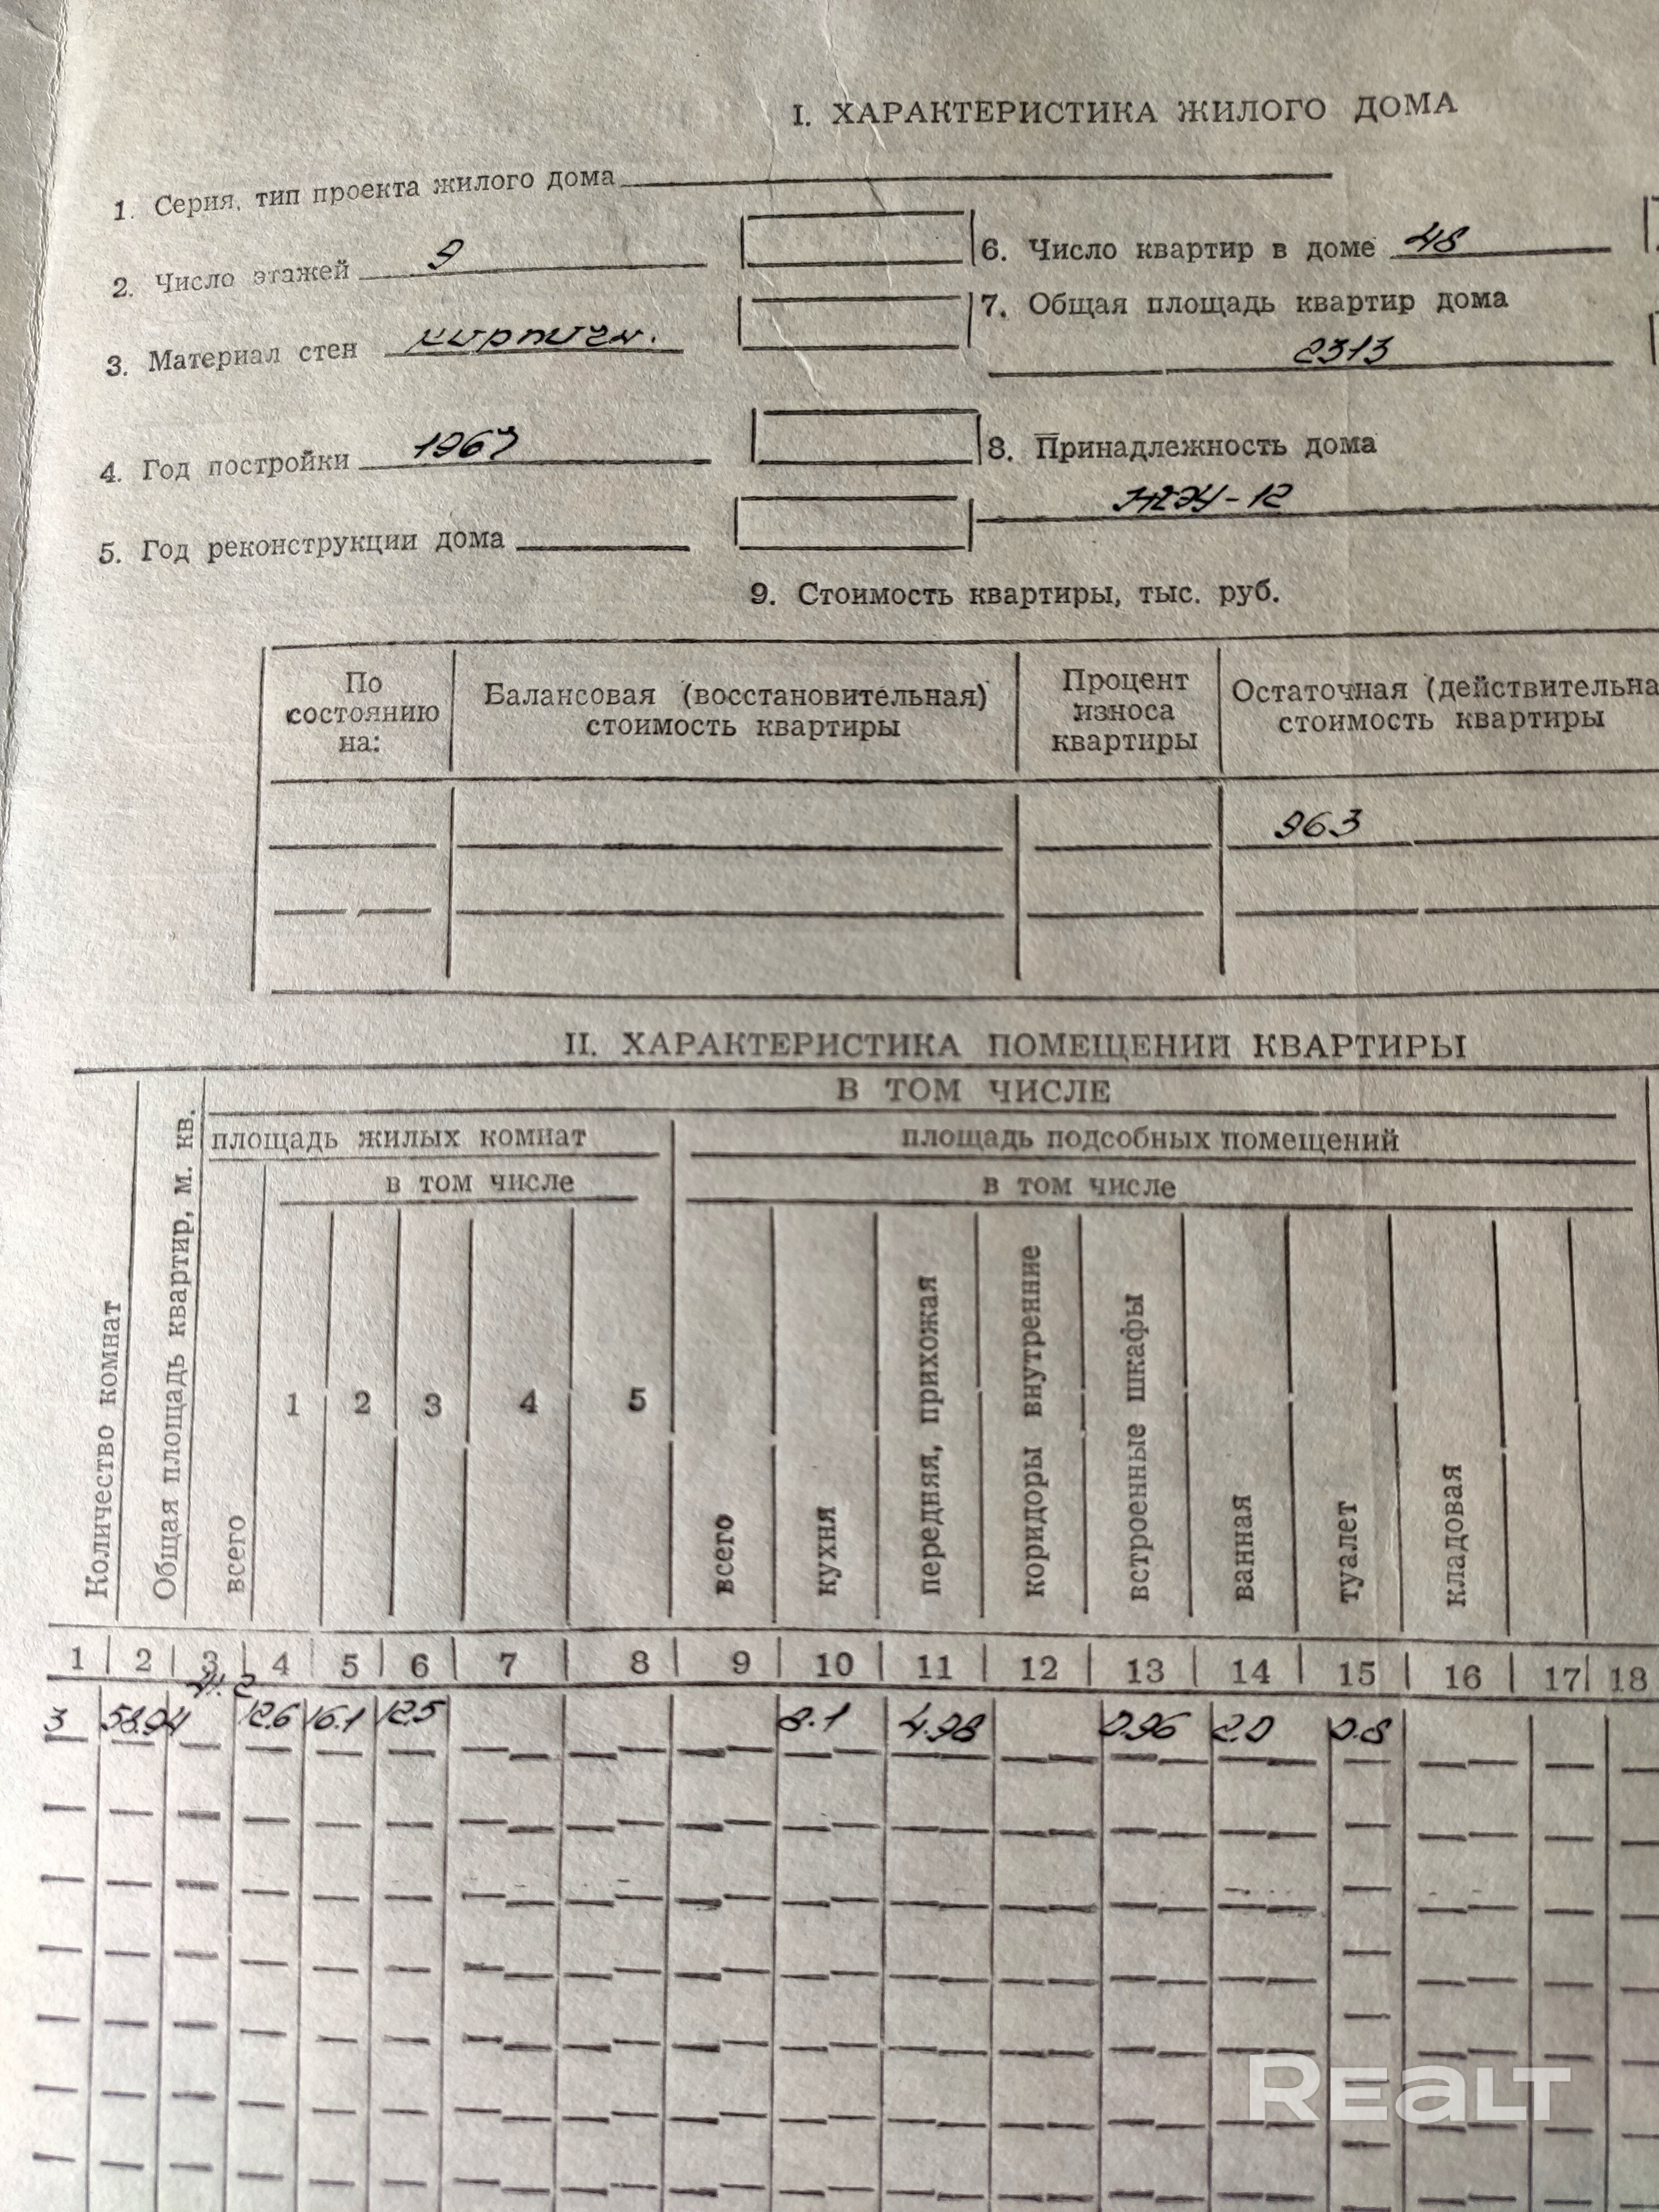 I. ХАРАКТЕРИСТИКА ЖИЛОГО ДОМА
1. Серия, тип проекта жилого дома
2. Число этажей 9
3. Материал стен кирпичн.
4. Год постройки 1967
5. Год реконструкции дома
6. Число квартир в доме 48
7. Общая площадь квартир дома
2313
8. Принадлежность дома
ЖЭУ-12
9. Стоимость квартиры, тыс. руб.
По состоянию на:
Балансовая (восстановительная) стоимость квартиры
Процент износа квартиры
Остаточная (действительна стоимость квартиры
963
II. ХАРАКТЕРИСТИКА ПОМЕЩЕНИЙ КВАРТИРЫ
В ТОМ ЧИСЛЕ
площадь жилых комнат
площадь подсобных помещений
в том числе
в том числе
Количество комнат
Общая площадь квартир, м. кв.
всего
1 2 3 4 5
всего
кухня
передняя, прихожая
коридоры внутренние
встроенные шкафы
ванная
туалет
кладовая
1 2 3 4 5 6 7 8 9 10 11 12 13 14 15 16 17 18
41.2
3 58.04 12.6 16.1 12.5 8.1 4.98 0.96 2.0 0.8
REALT